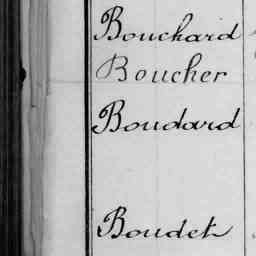 Bouchard
Boucher
Boudard
Boudet